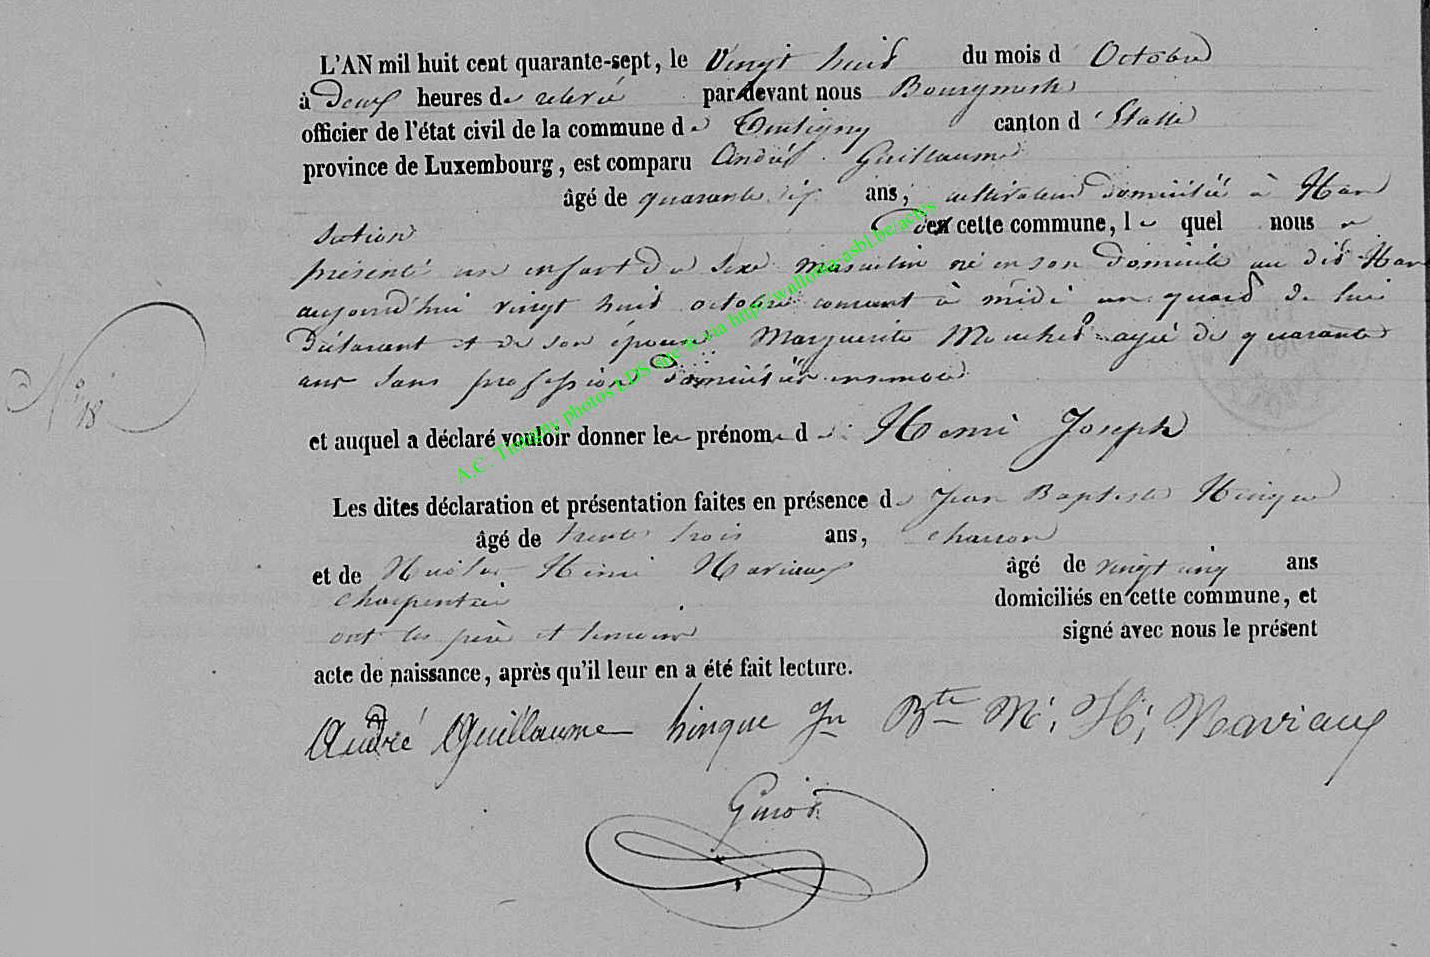 L'AN mil huit cent quarante-sept, le Vingt huit du mois d'Octobre
à Deux heures de relevé par devant nous Bourgmestre
officier de l'état civil de la commune de Tintigny canton d'Etalle
province de Luxembourg, est comparu André Guillaume
âgé de quarante six ans, cultivateur domicilié à Han
Section
de cette commune, lequel nous a
présenté un enfant du Sexe Masculin né en son Domicile au dit Han
aujourd'hui vingt huit octobre courant à midi un quart de lui
Déclarant et de son épouse Marguerite agée de quarante
ans Sans profession Domiciliés ensemble
N° 18
et auquel a déclaré vouloir donner le prénom de Henri Joseph
Les dites déclaration et présentation faites en présence de Jean Baptiste Hinque
âgé de trente trois ans, charron
et de Henri Naviaux âgé de vingt cinq ans
charpentier domiciliés en cette commune, et
ont les père et témoins signé avec nous le présent
acte de naissance, après qu'il leur en a été fait lecture.
André Guillaume hinque Jn Bte N: H: Naviaux
A.C. Tintigny photos LDS mise via http://wallonia-asbl.be/actes